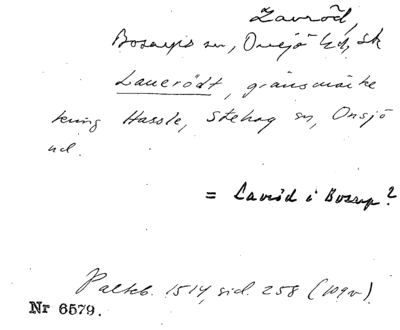 Lavröd,
Bosarps sn, Onsjö hd, Sk
Lauerödt, gränsmärke
kring Hassle, Stehag sn, Onsjö
hd.
= Lavröd i Bosarp?
Palteb. 1514, sid. 258 (109v)
Nr 6579.